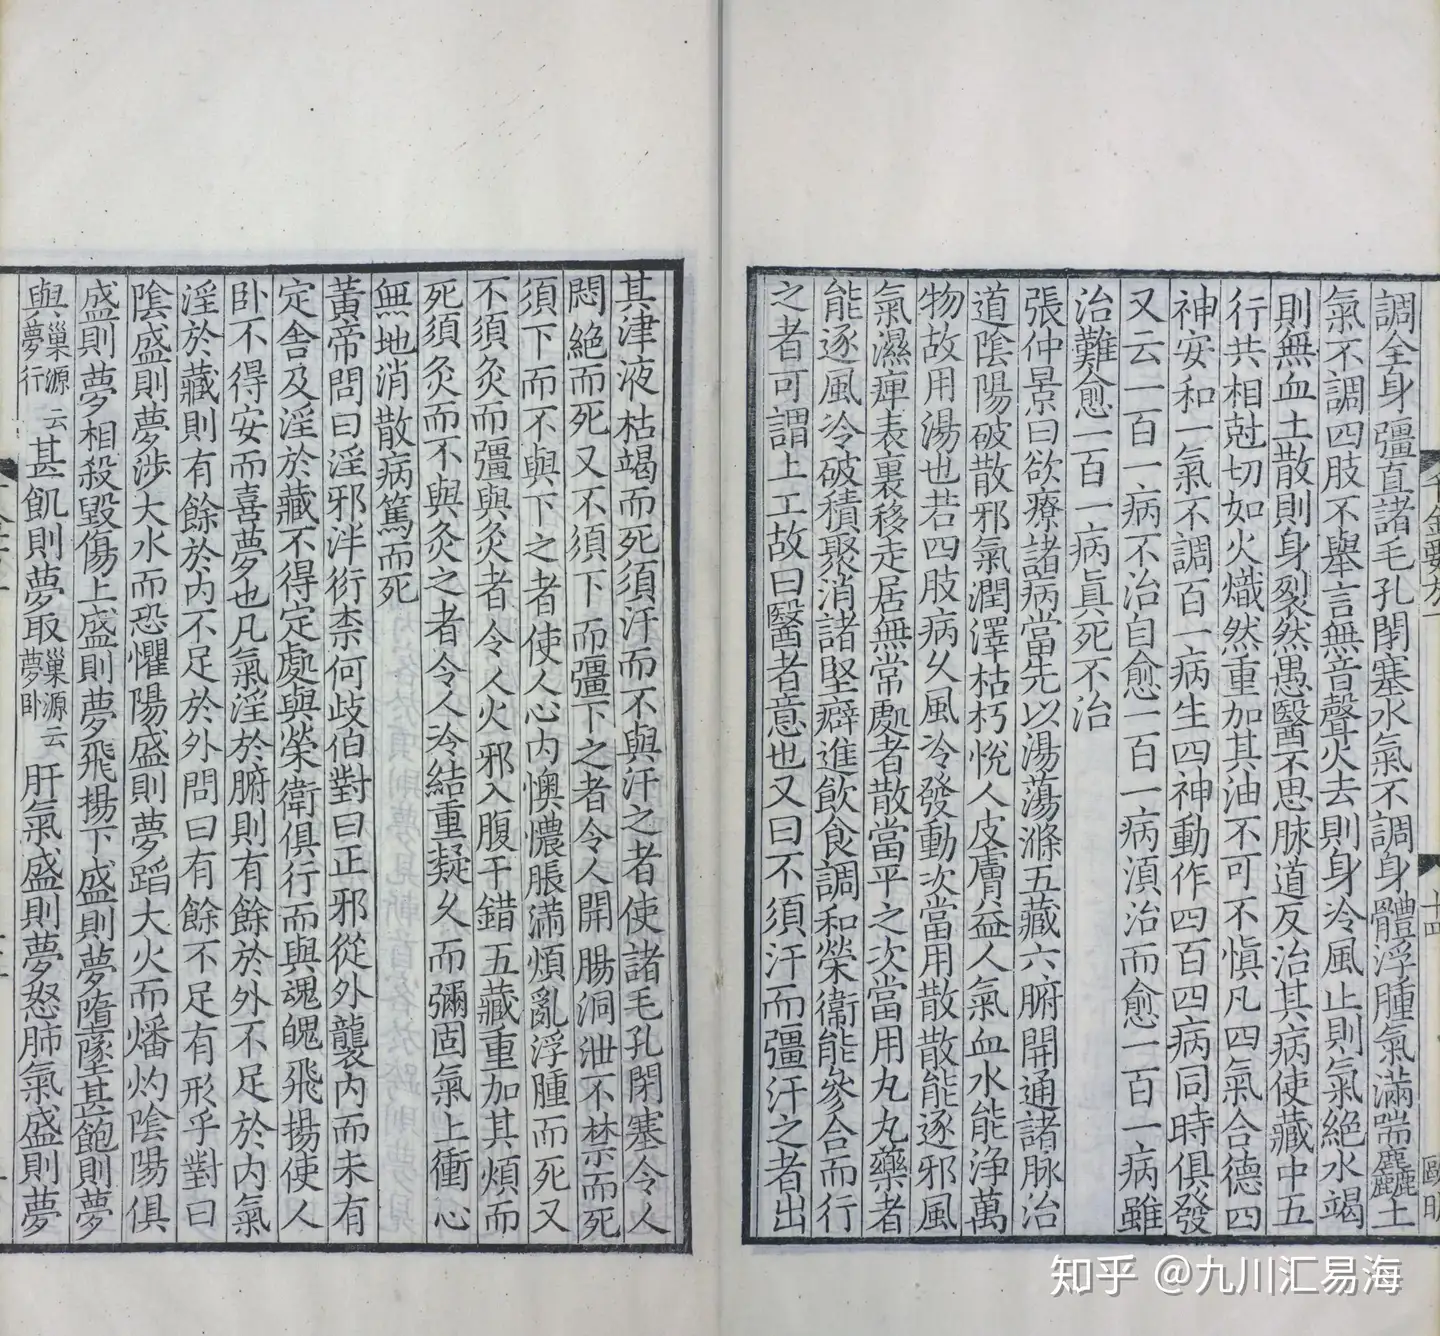 調全身彊直諸毛孔閉塞水氣不調身體浮腫氣滿喘麤土
氣不調四肢不舉言無音聲火去則身冷風止則氣絕水竭
則無血土散則身裂然愚醫不思脉道反治其病使藏中五
行共相尅切如火熾然重加其油不可不愼凡四氣合德四
神安和一氣不調百一病生四神動作四百四病同時俱發
又云一百一病不治自愈一百一病湏治而愈一百一病雖
治難愈一百一病眞死不治
張仲景曰欲療諸病當先以湯蕩滌五藏六腑開通諸脉治
道陰陽破散邪氣潤澤枯朽悅人皮膚益人氣血水能浄萬
物故用湯也若四肢病久風冷發動次當用散散能逐邪風
氣濕痺表裏移走居無常處者散當平之次當用丸丸藥者
能逐風冷破積聚消諸堅癖進飲食調和榮衞能參合而行
之者可謂上工故曰醫者意也又曰不須汗而彊汗之者出
千金要方一
十四
其津液枯竭而死須汗而不與汗之者使諸毛孔閉塞令人
悶絕而死又不須下而彊下之者令人開腸洞泄不禁而死
須下而不與下之者使人心内懊憹脹滿煩亂浮腫而死又
不須灸而彊與灸者令人火邪入腹干錯五藏重加其煩而
死須灸而不與灸之者令人冷結重凝久而彌固氣上衝心
無地消散病篤而死
黃帝問曰淫邪泮衍柰何歧伯對曰正邪從外襲内而未有
定舍及淫於藏不得定處與榮衛俱行而與魂魄飛揚使人
卧不得安而喜夢也凡氣淫於腑則有餘於外不足於内氣
淫於藏則有餘於内不足於外問曰有餘不足有形乎對曰
陰盛則夢涉大水而恐懼陽盛則夢蹈大火而燔灼陰陽俱
盛則夢相殺毀傷上盛則夢飛揚下盛則夢墮墜甚飽則夢
與巢源云夢行甚飢則夢取巢源云夢卧肝氣盛則夢怒肺氣盛則夢
知乎 @九川汇易海